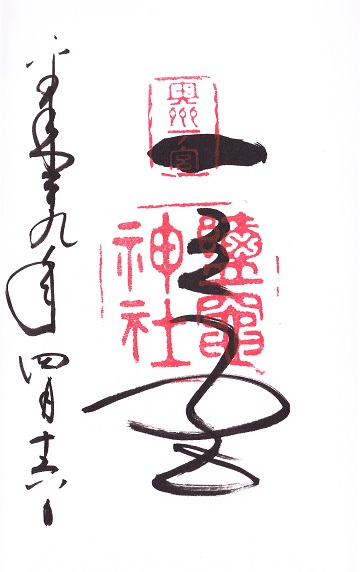 奥州
一宮
鹽竈
神社
一之宮
平成二十九年四月十六日